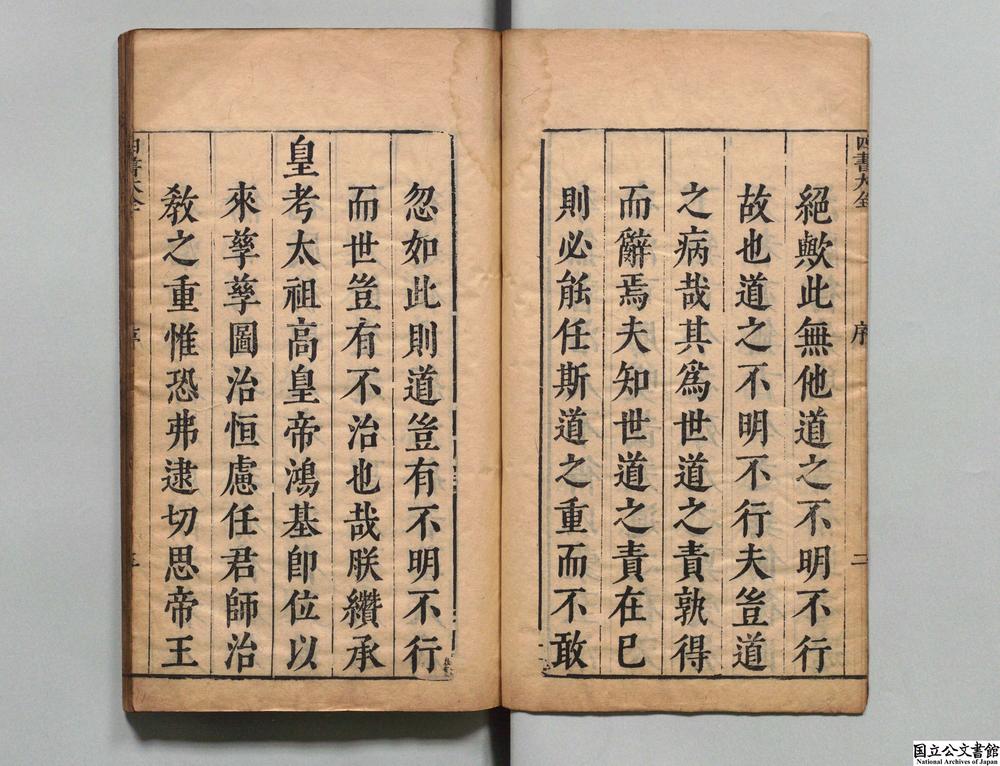 四書大全
序
二
絕歟此無他道之不明不行
故也道之不明不行夫豈道
之病哉其爲世道之責孰得
而辭焉夫知世道之責在已
則必能任斯道之重而不敢
忽如此則道豈有不明不行
而世豈有不治也哉朕纘承
皇考太祖高皇帝鴻基卽位以
來孳孳圖治恒慮任君師治
敎之重惟恐弗逮切思帝王
四書大全
序
国立公文書館
National Archives of Japan